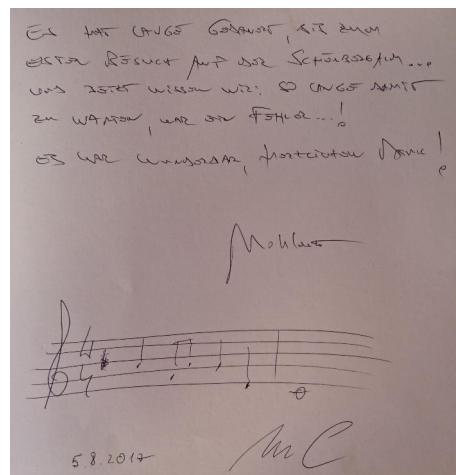 Es hat lange gedauert, bis zum
ersten Besuch auf der Schönbergalm...
und jetzt wissen wir: so lange damit
zu warten, war ein Fehler...!
Es war wunderbar, herzlichen Dank!
4
4
5.8.2017